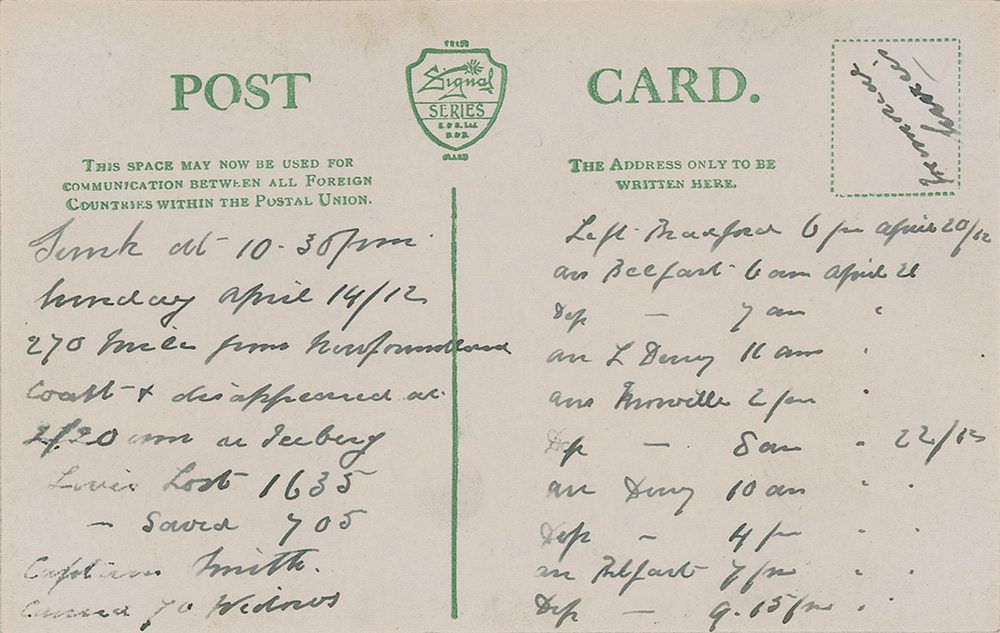 POST CARD.
Signal
SERIES
THIS SPACE MAY NOW BE USED FOR
COMMUNICATION BETWEEN ALL FOREIGN
COUNTRIES WITHIN THE POSTAL UNION.
THE ADDRESS ONLY TO BE
WRITTEN HERE.
Sunk at 10-30 pm
Sunday April 14/12
270 miles from Newfoundland
Coast & disappeared at
2/20 am Iceberg
Lives Lost 1635
– Saved 705
Captain Smith.
70 Widows
Left Bradford 6 pm April 20/12
arr Belfast 6 am April 21
Dep — 7 am "
arr L Derry 11 am "
arr Moville 2 pm "
Dep — 8 am " 22/12
arr Derry 10 am " "
Dep - 4 pm " "
arr Belfast 7 pm " "
Dep — 9.15 pm " "